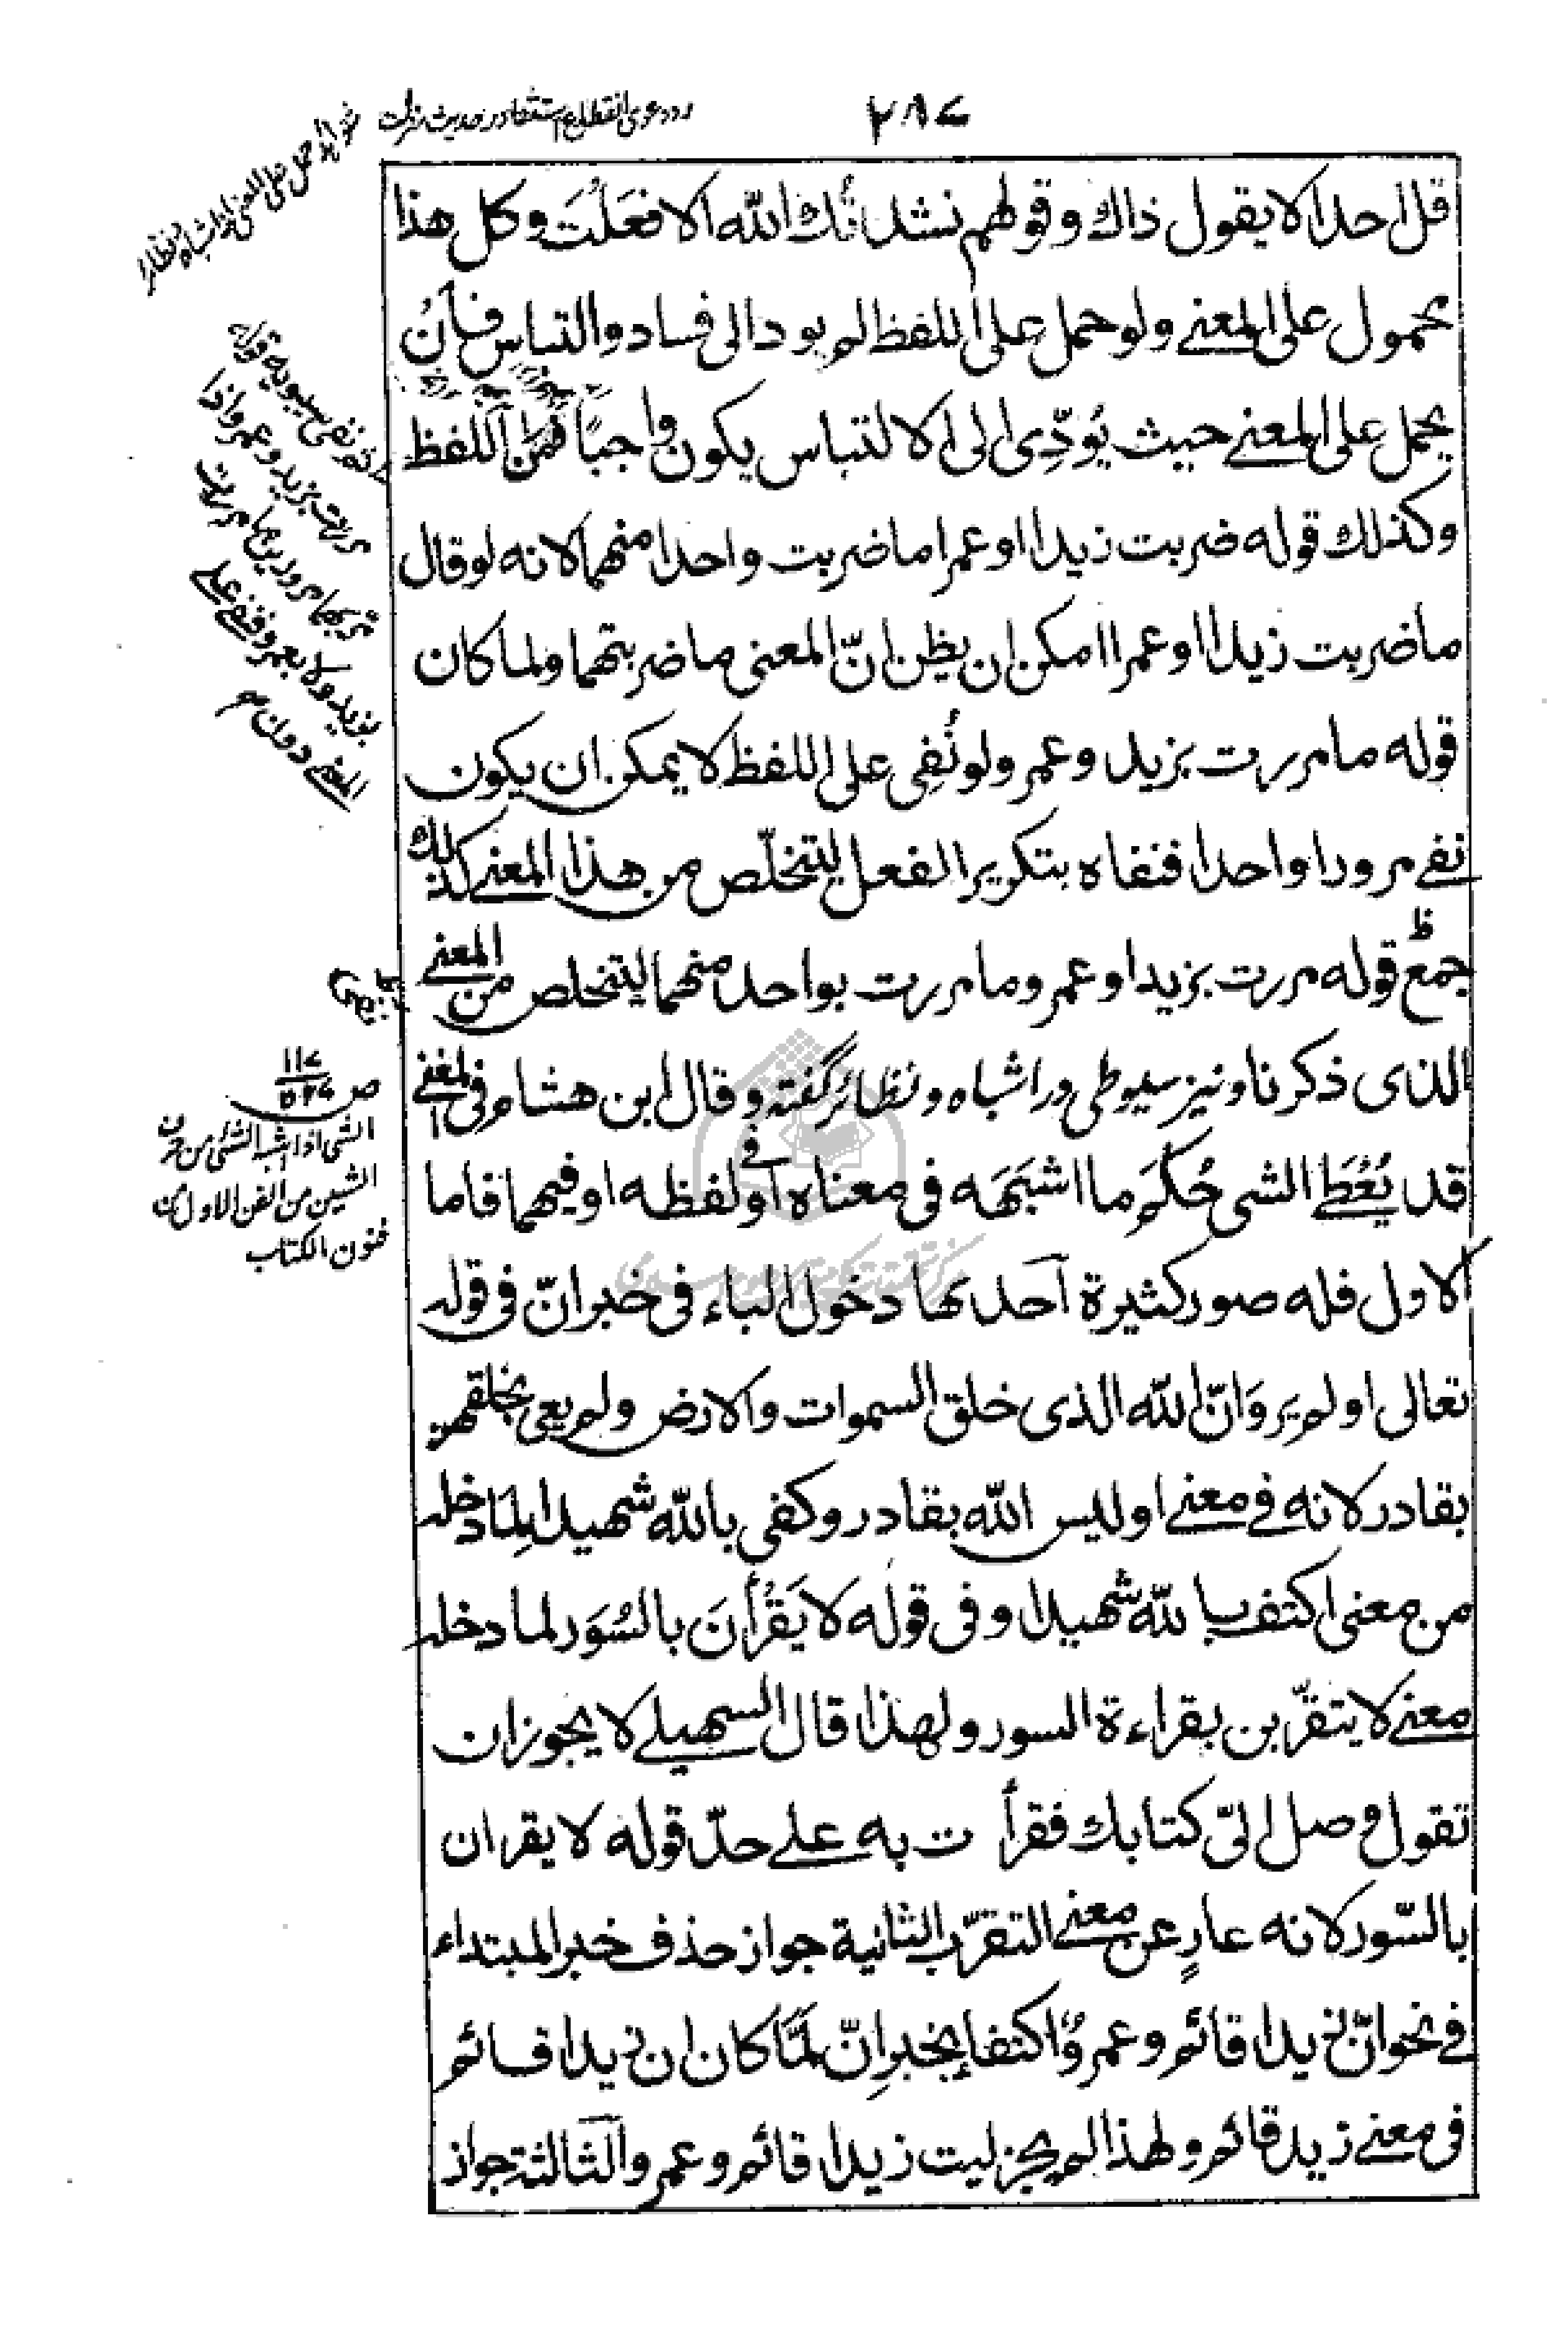 ٢٨٧
رد دعوی انقطاع استثنا در حدیث منزلت
شواهد حمل علی المعنی از اشباه و نظائر
قل احدا لا يقول ذاك وقولهم نشدتُك الله الا فعَلْتَ وكل هذا
محمول على المعنے ولو حمل على اللفظ لم يود الى فساد والتباس فأن
يحمل على المعنے حيث يُودِّى الى الالتباس يكون واجبًا فمن اللفظ
وكذلك قوله ضربت زيدا او عمرا ما ضربت واحدا منهما لانه لو قال
ما ضربت زيدا او عمرا امكن ان يظن انّ المعنى ما ضربتهما ولما كان
قوله ما مررت بزيد وعمرو لو نُفِى على اللفظ لا يمكن ان يكون
نفے مرورا واحدا فنفاه بتكرير الفعل ليتخلّص من هذا المعنے كذلك
جمع قوله مررت بزيد او عمرو وما مررت بواحد منهما ليتخلص من المعنے
الذى ذكرنا ونيز سيوطى در اشباه ونظائر گفته وقال ابن هشام فى المغنے
قد يُعْطَے الشى حُكْمَ ما اشبَهَه فى معناه او فے لفظه او فيهما فاما
الاول فله صور كثيرة آحدىها دخول الباء فى خبر انّ فى قوله
تعالى اولم يروا انّ الله الذى خلق السموات والارض ولم يعى بخلقهن
بقادر لانه فے معنے اوليس الله بقادر وكفى بالله شهيدا لِمَا دخله
من معنى اكتف بالله شهيدا وفى قوله لا يَقْرَأْنَ بالسُوَر لما دخله
معنے لا يتقرّبن بقراءة السور ولهذا قال السهيلے لا يجوز ان
تقول وصل الىّ كتابك فقرأت به علے حدّ قوله لا يقران
بالسّور لانه عارٍ عن معنے التقرّب الثانية جواز حذف خبر المبتداء
فے نحو انّ زيدا قائم وعمرو اكتفاء بخبر انّ لمّا كان ان زيدا قائم
فى معنے زيد قائم ولهذا لم يجز ليت زيدا قائم وعمرو والثالثة جواز
نفى سيبويه قوله
مررت بزيد وعمرو اذا
مررت
بزيد ولا بعمرو فنفے علے
المعنے دون
ص ١١٧
٥٣٧
الشى اذا اشبه الشئ من حرف
الشين من الفن الاول من
فنون الكتاب